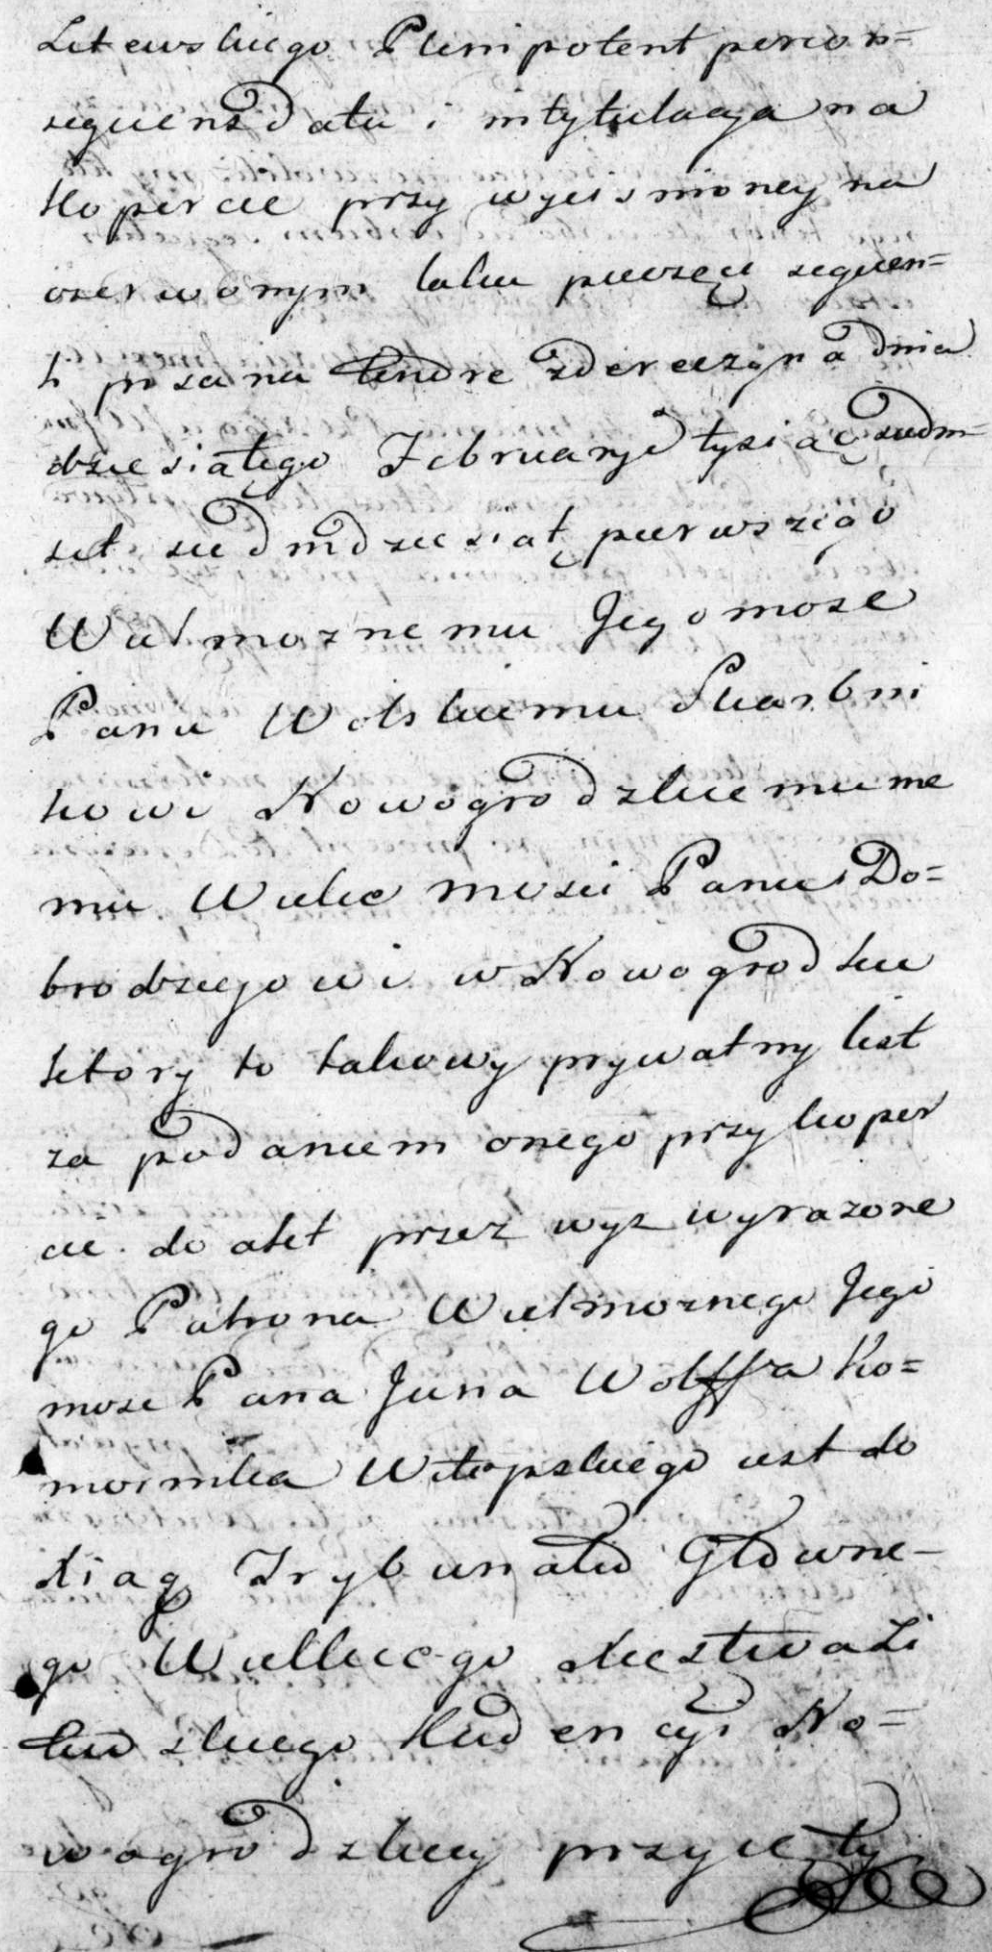 Litewskiego Plenipotent percon=
sequens datu i intytulacya na
kopercie przy wycisnioney na
czerwonym laku pieczęci sequen=
t pisana dnia
dziesiątego Februarye tysiąc siedm
set siedmdziesiąt pierwszego
Wielmoznemu Jegomosc
Panu Wolskiemu Skarbni
kowi Nowogrodzkiemu me
mu Wielce mosci Panu Do=
brodziejowi w Nowogrodku
ktory to takowy prywatny list
za podaniem onego przy koper
cie do akt przez wyz wyrazone
go Patrona Wielmoznego Jego
mosc Pana Jana Wolffa Ko=
mornika Witepskiego iest do
Xiąg Trybunału Głowne-
go Wielkiego Xięstwa Li
tewskiego Kadencyi No=
wogrodzkiey przyięty